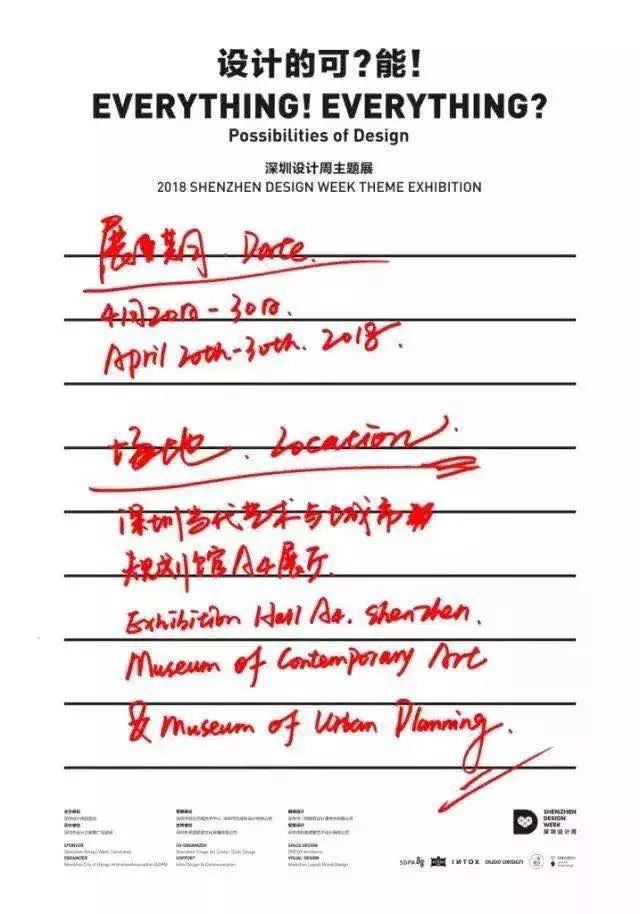 设计的可?能!
EVERYTHING! EVERYTHING?
Possibilities of Design
深圳设计周主题展
2018 SHENZHEN DESIGN WEEK THEME EXHIBITION
展期 . Date.
4月20日-30日.
April 20th-30th. 2018.
场地 . Location.
深圳当代艺术与城市
规划馆A4展厅
Exhibition Hall A4. Shenzhen.
Museum of Contemporary Art
& Museum of Urban Planning.
SPONSOR
Shenzhen Design Week Committee
ORGANIZER
CO-ORGANIZER
SUPPORT
SPACE DESIGN
VISUAL DESIGN
SHENZHEN
DESIGN
WEEK
深圳设计周
SDPA
INTOX
OUDO DESIGN